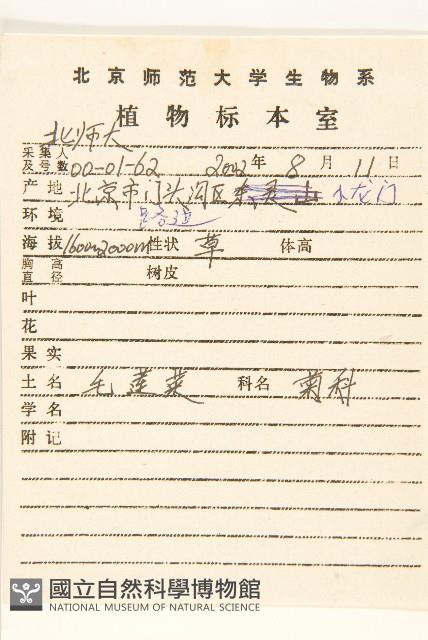 北京师范大学生物系
植物标本室
采集人及号数 北师大 00-01-62 2002年 8 月 11 日
产地 北京市门头沟区 小龙门
环境 路边
海拔 1600m-2000m 性状 草 体高
胸高直径 树皮
叶
花
果实
土名 毛莲菜 科名 菊科
学名
附记
國立自然科學博物館
NATIONAL MUSEUM OF NATURAL SCIENCE